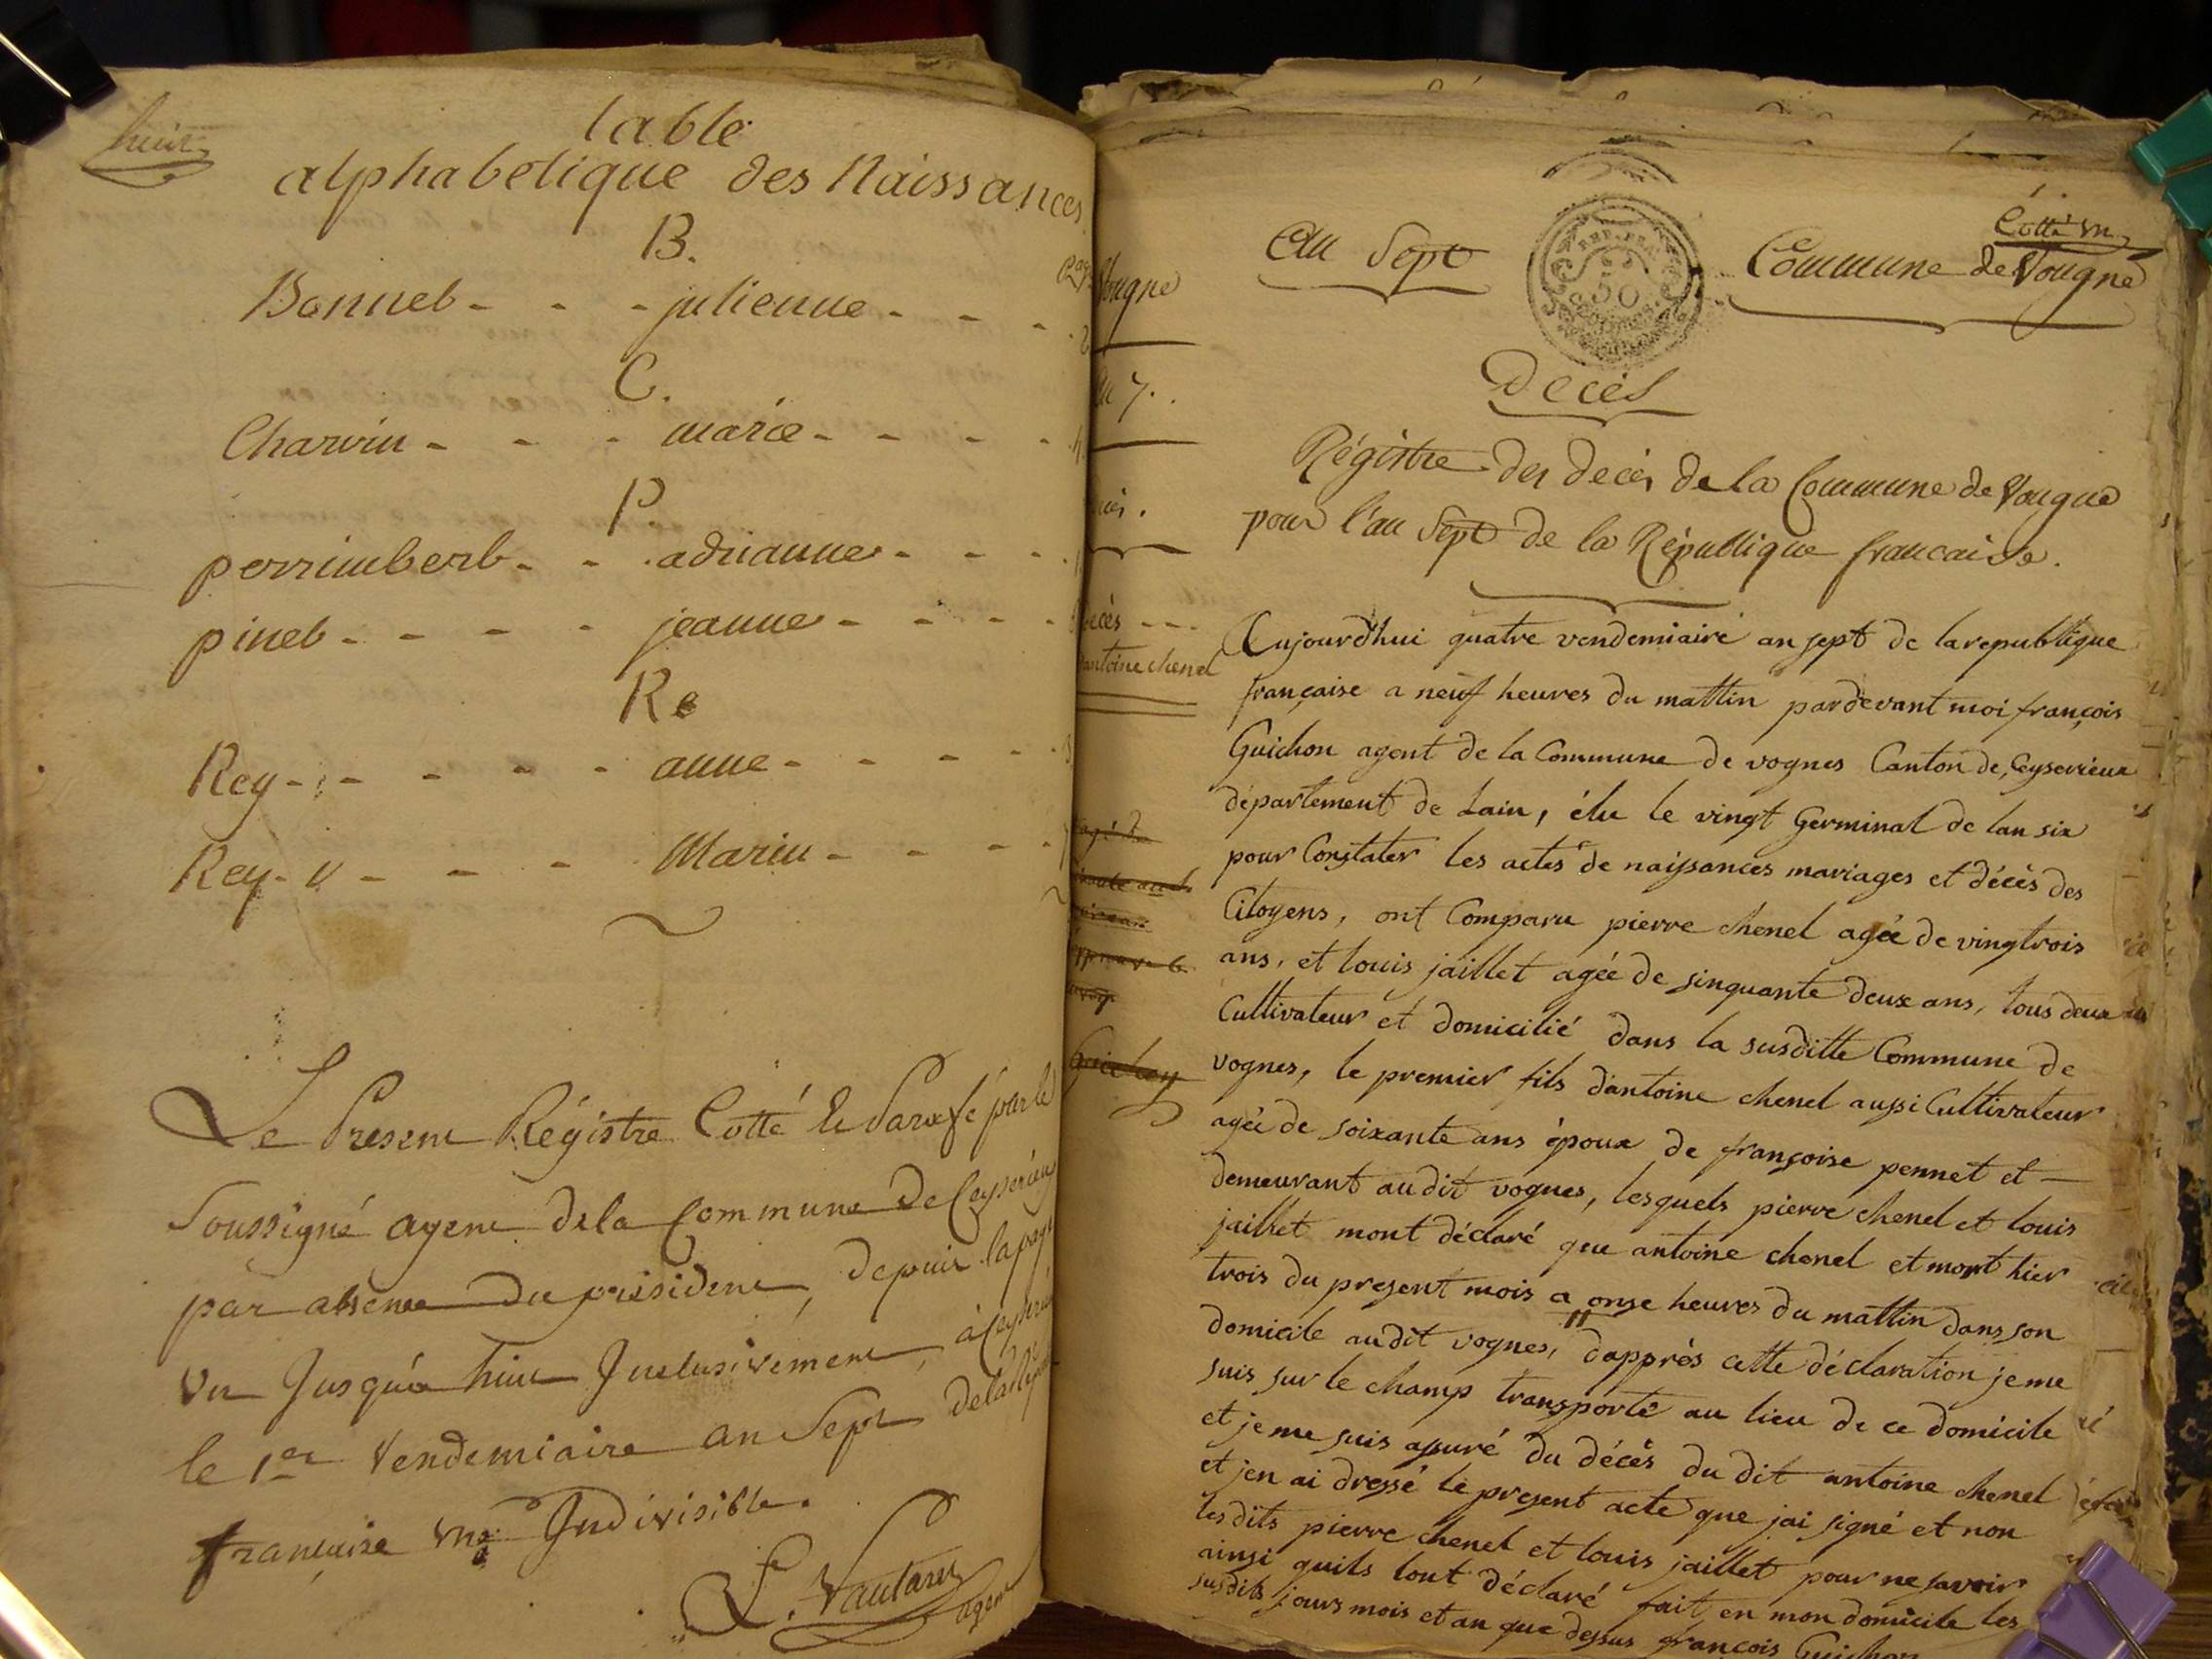 huit
table
alphabetique des Naissances
B.
Bonnet - - - julienne - - - 2
C.
Charvin - - - marie - - - - 4
P.
perrimbert - - - adrianne - - -
pinet - - - - jeanne - - - -
Re
Rey - - - - - anne - - - -
Rey - v - - - Marie - - - -
Le Present Régistre Cotté & Paraffé par le
Soussigné agent de la Commune de Ceyserieu
par absence du président, depuis la page
un Jusqu'a huit Inclusivement, à Ceyserieu
le 1er Vendemiaire an Sept de la Rep
française une Indivisible.
F. Vautaret
agent
Vougne
an 7.
Décès ---
antoine chenel
Guichon
Cotté un
an Sept
REP. FRA.
50
CENTIMES
Commune de Vougne
Décès
Régistre des decès de la Commune de Vougne
pour l'an Sept de la République francaise.
Aujourdhui quatre vendemiaire an sept de la republique
française a neuf heures du mattin pardevant moi françois
Guichon agent de la Commune de vognes Canton de Ceyserieux
département de Lain, élu le vingt Germinal de lan six
pour Constater les actes de naissances mariages et décès des
Citoyens, ont Comparu pierre chenel agée de vingtrois
ans, et louis jaillet agée de sinquante deux ans, tous deux
Cultivateur et domicilié dans la susditte Commune de
vognes, le premier fils dantoine chenel aussi Cultivateur
agée de soixante ans époux de françoise pennet et —
demeurant audit vognes, lesquels pierre chenel et louis
jaillet mont déclaré que antoine chenel et mort hier
trois du present mois a onse heures du mattin dans son
domicile audit vognes, dapprès cette déclaration je me
suis sur le champ transporté au lieu de ce domicile
et je me suis assuré du décès du dit antoine chenel
et jen ai dressé le present acte que jai signé et non
lesdits pierre chenel et louis jaillet pour ne savoir
ainsi quils lont déclaré fait en mon domicile les
susdits jours mois et an que dessus françois Guichon